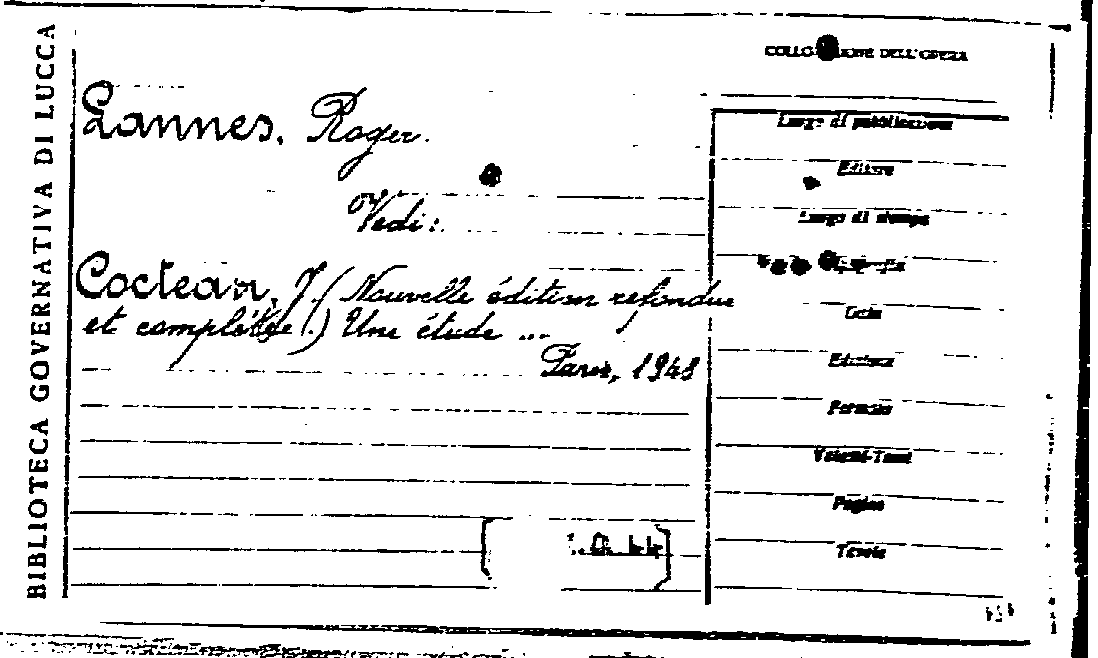 BIBLIOTECA GOVERNATIVA DI LUCCA
DELL'OPERA
Lannes, Roger.
Vedi:
Cocteau, J. (Nouvelle édition refondue
et complétée.) Une étude ...
Paris, 1948
Luogo di pubblicazione
Editore
Luogo di stampa
Edizione
Formato
Volumi-Tomi
Pagine
Tavole